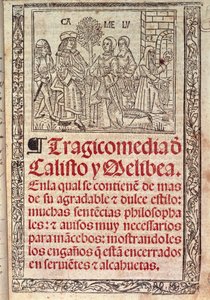 CA ME LV
¶ Tragicomedia d̄
Calisto y Melibea.
Enla qual se contienē de mas
de su agradable ⁊ dulce estilo:
muchas sentēcias philosopha
les: ⁊ auisos muy necessarios
para mācebos: mostrandoles
los engaños q̄ estā encerrados
en seruiētes ⁊ alcahuetas.